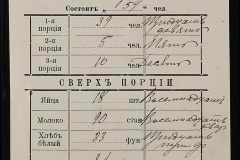 Состоитъ „ 154 “ чел.
1-я порція 39 чел. Тридцать девять
2-я порція 5 чел. Пять
3-я порція 10 чел. Десять
СВЕРХЪ ПОРЦІИ
Яйца 18 шт. Восемнадцать
Молоко 90 стак.
Хлѣбъ бѣлый 33 фун. Тридцать три ф.